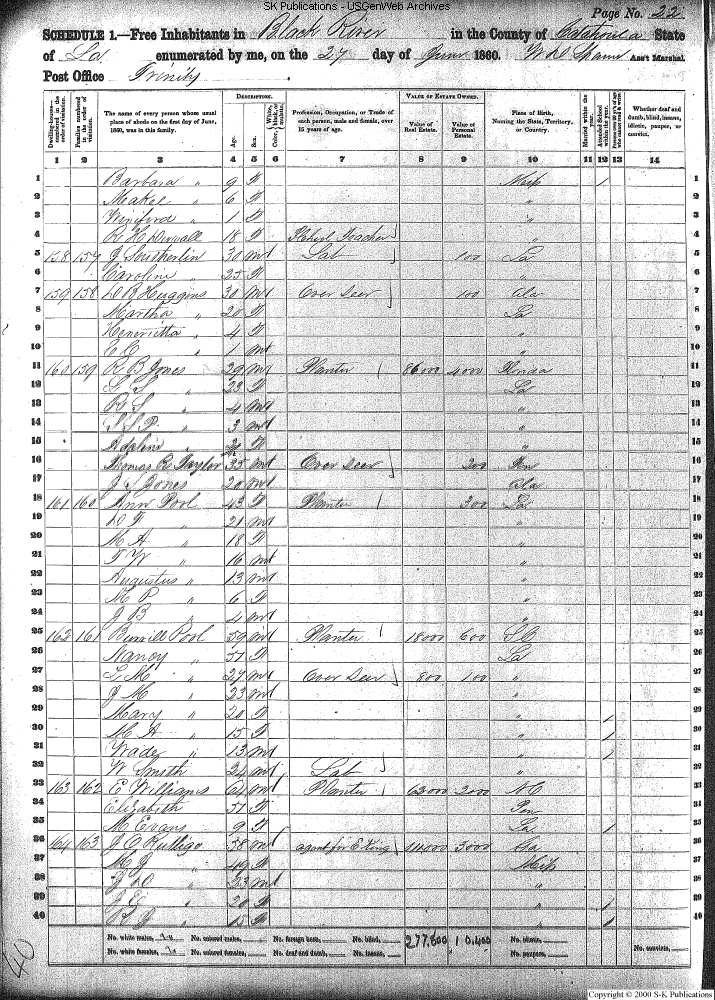 SK Publications - USGenWeb Archives
Page No. 22
SCHEDULE 1.—Free Inhabitants in Black River in the County of Catahoula State
of La enumerated by me, on the 27 day of June 1860. Ass't Marshal.
Post Office Trinity
Dwelling-houses—numbered in the order of visitation.
Families numbered in the order of visitation.
The name of every person whose usual place of abode on the first day of June, 1860, was in this family.
DESCRIPTION.
Age.
Sex.
Color, White, black, or mulatto.
Profession, Occupation, or Trade of each person, male and female, over 15 years of age.
VALUE OF ESTATE OWNED.
Value of Real Estate.
Value of Personal Estate.
Place of Birth, Naming the State, Territory, or Country.
Married within the year.
Attended School within the year.
Persons over 20 y'rs of age who cannot read & write.
Whether deaf and dumb, blind, insane, idiotic, pauper, or convict.
1 2 3 4 5 6 7 8 9 10 11 12 13 14
1 Barbara " 9 F Miss / 1
2 " 6 F " 2
3 Winiford " 1 F " 3
4 R H 18 F School Teacher " 4
5 158 157 J Southerlin 30 m Lab 100 La 5
6 Caroline " 25 F " 6
7 159 158 D B Huggins 30 m Over Seer 100 Ala 7
8 Martha " 20 F La 8
9 Henrietta " 4 F " 9
10 C C " 1 m " 10
11 160 159 R B Jones 29 m Planter 86000 4000 Florida 11
12 S S " 23 F La 12
13 R S " 4 m " 13
14 S S P " 3 m " 14
15 Adaline " F " 15
16 Thomas R Taylor 35 m Over Seer 200 16
17 J S Jones 20 m Ala 17
18 161 160 Ann Pool 43 F Planter 300 La 18
19 D F " 21 m " 19
20 M A " 18 F " 20
21 T W " 16 m " 21
22 Augustus " 13 m " 22
23 M P " 6 F " 23
24 J B " 4 m " 24
25 162 161 Burrill Pool 59 m Planter 18000 600 S C 25
26 Nancy " 51 F La 26
27 L M " 27 m Over Seer 800 100 " 27
28 J M " 23 m " 28
29 Mary " 20 F " 29
30 M A " 15 F " / 30
31 Wade " 13 m " / 31
32 W Smith 24 m Lab " 32
33 163 162 E Williams 64 m Planter 63000 2000 N C 33
34 Elizabeth " 51 F 34
35 M Evans 9 F La / 35
36 164 163 J C 58 m agent for E King 3000 Ga 36
37 M J " 49 F Miss 37
38 " 23 m " 38
39 J E " 20 F " / 39
40 " 15 F " / 40
No. white males, 20 No. colored males, No. foreign born, No. blind, 277,800 10,400 No. idiotic, No. convicts,
No. white females, 20 No. colored females, No. deaf and dumb, No. insane, No. paupers,
40
Copyright © 2000 S-K Publications